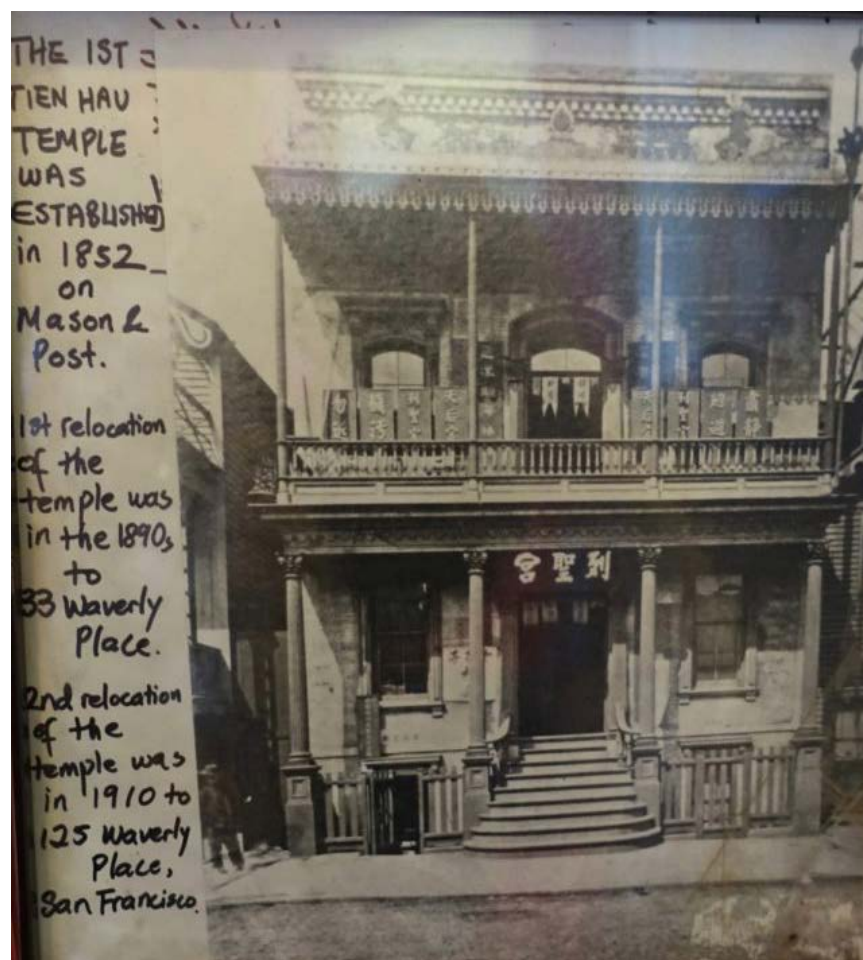 THE 1ST
TIEN HAU
TEMPLE
WAS
ESTABLISHED
in 1852
on
Mason &
Post.
1st relocation
of the
temple was
in the 1890s
to
33 Waverly
Place.
2nd relocation
of the
temple was
in 1910 to
125 Waverly
Place,
San Francisco.
列聖宮